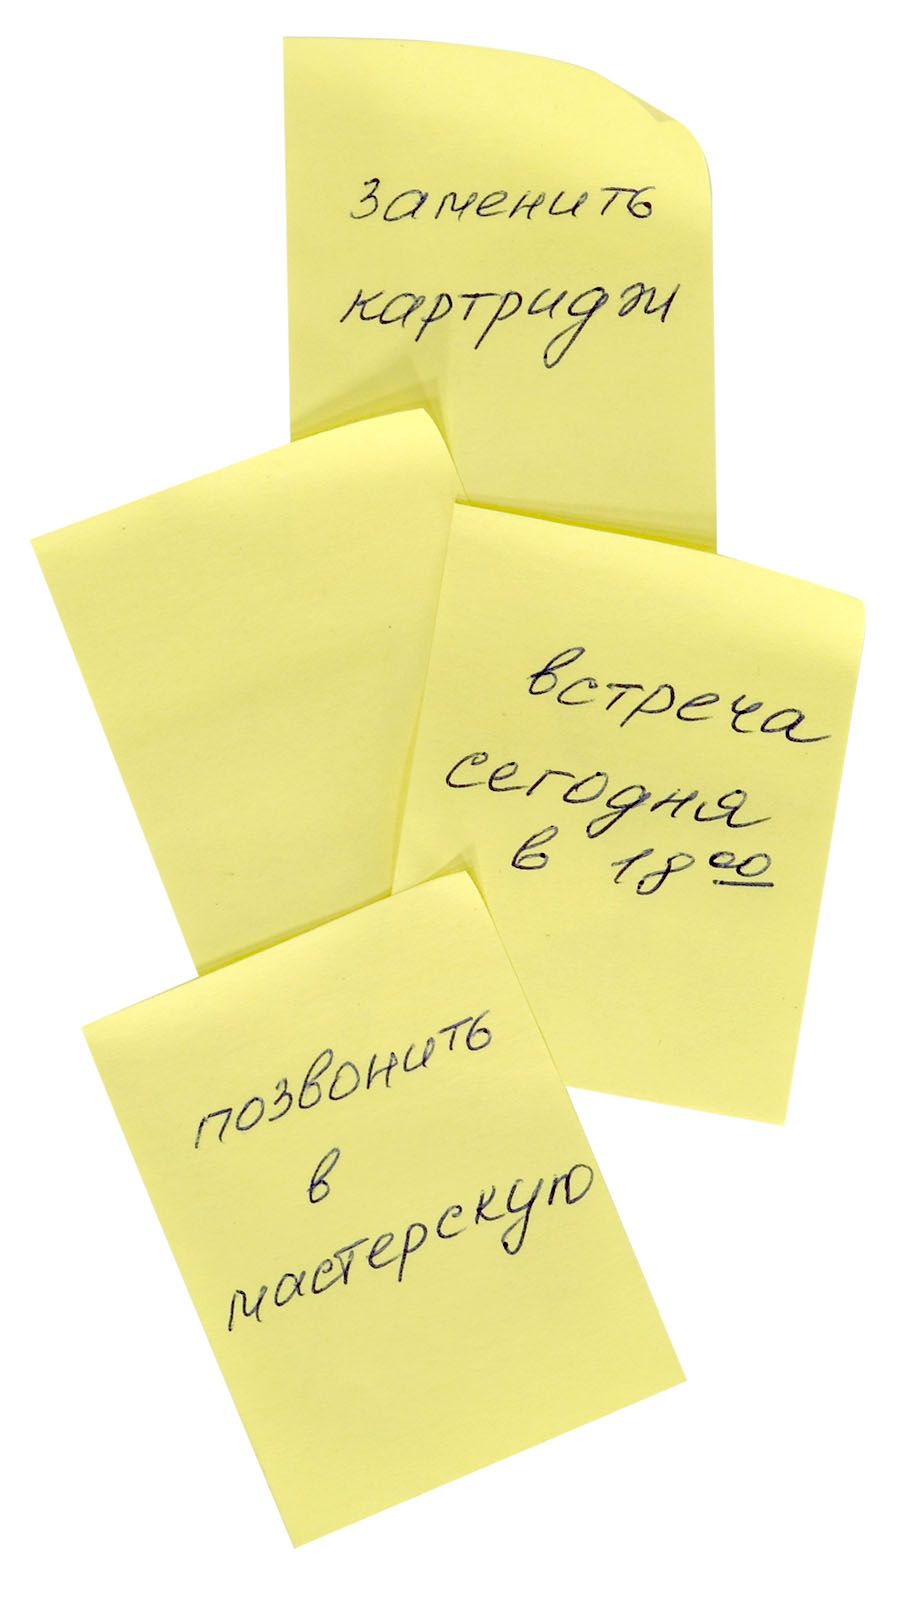 заменить
картридж
встреча
сегодня
в 18 00
позвонить
в
мастерскую